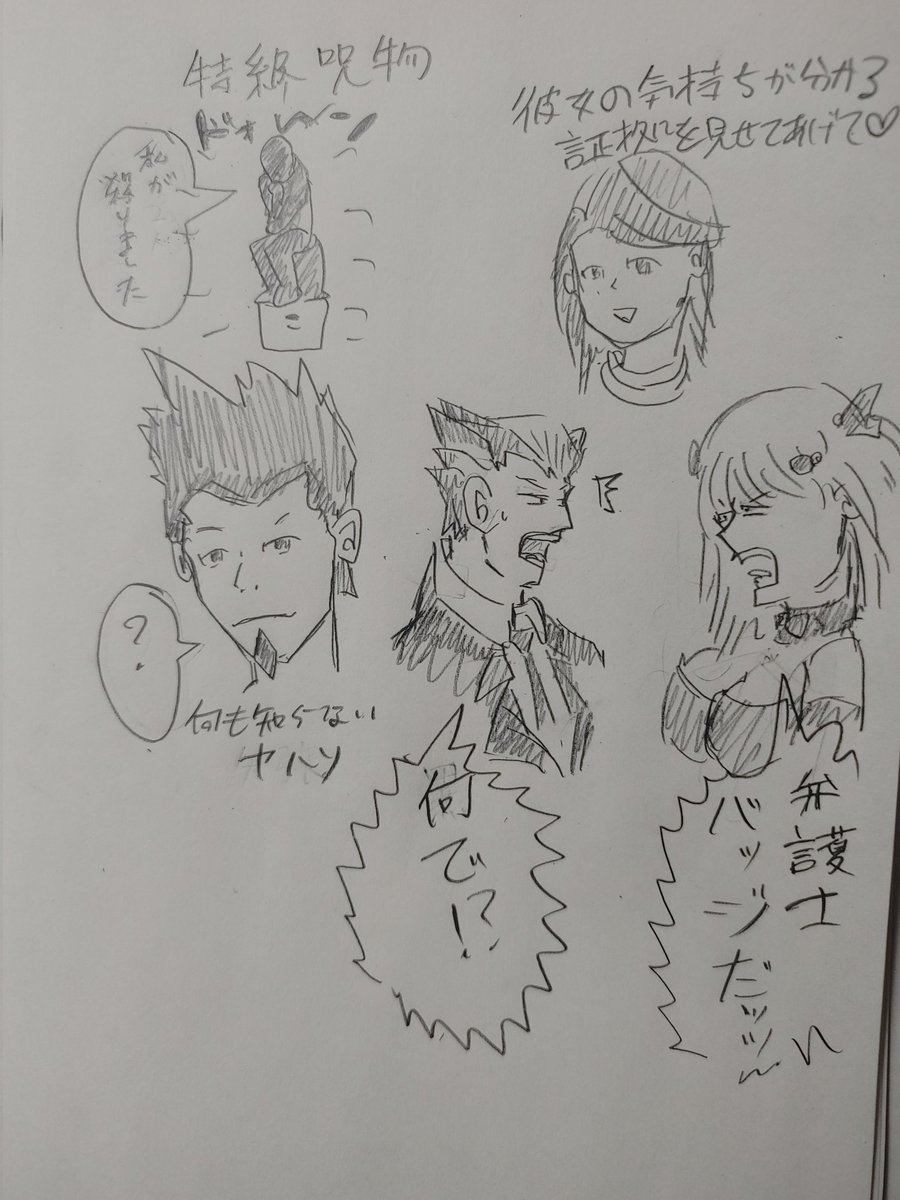 特級呪物
ドォレーン
私が
殺りました
彼女の気持ちが分かる
証拠を見せてあげて♡
?
何も知らない
ヤハリ
何で!?
弁護士
バッジだッッ